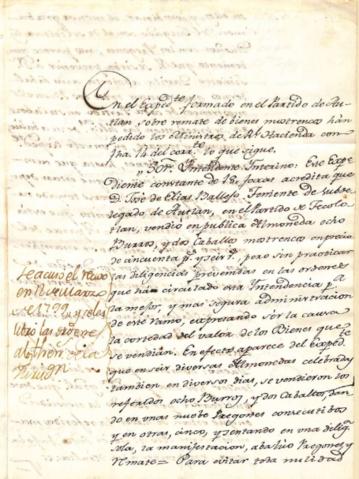 En el Expedte. formado en el Partido de Au-
tlan sobre remate de bienes mostrencos han
pedido los Ministros de Rl. Hacienda con
fha. 14 del corrte. lo que sigue.
"Sor. Yntendente Ynterino: Este Expe
diente constante de 15 foxas acredita que
d. José de Elias Vallejo, Teniente de subde-
legado de Autlan, en el Partido de Tecolo-
tlan, vendió en publica Almoneda ocho
Burros, y dos Caballos mostrencos en precio
de cincuenta ps. y seis rs. pero sin practicar
las diligencias prevenidas en las ordenes
que han circulado esta Yntendencia pa.
la mejor, y mas segura administracion
de este ramo, expresando ser la causa
la cortedad del valor de los Bienes que
se vendian. En efecto aparece del Exped.
que en seis diversas Almonedas celebradas
tambien en diversos dias, se vendieron los
referidos ocho Burros, y dos Caballos, dan-
do en unas nueve Pregones consecutibos
y en otras, cinco, y sentando en una delig.a
sola, la manifestacion, abaluo Pregones y
Remate = Para evitar toda nulidad
Se acusó el recivo
en 11 de Marzo